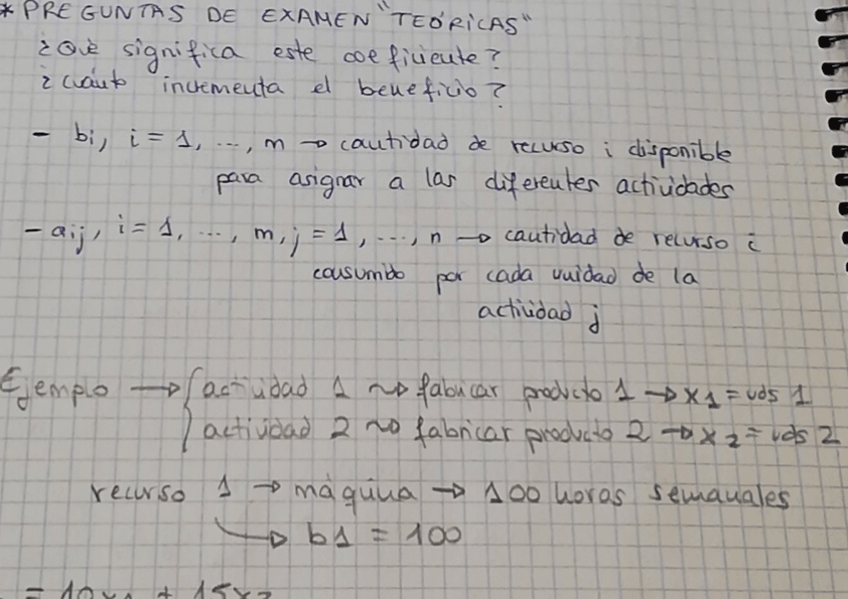 * PREGUNTAS DE EXAMEN "TEÓRICAS"
¿Qué significa este coeficiente?
¿cuánto incrementa el beneficio?
- bi, i = 1, ..., m → cantidad de recurso i disponible
para asignar a las diferentes actividades
- aij, i = 1, ..., m, j = 1, ..., n → cantidad de recurso i
consumido por cada unidad de la
actividad j
Ejemplo → { actividad 1 ⇝ fabricar producto 1 → x1 = uds 1
actividad 2 ⇝ fabricar producto 2 → x2 = uds 2
recurso 1 → máquina → 100 horas semanales
↳ b1 = 100
= 10x1 + 15x2